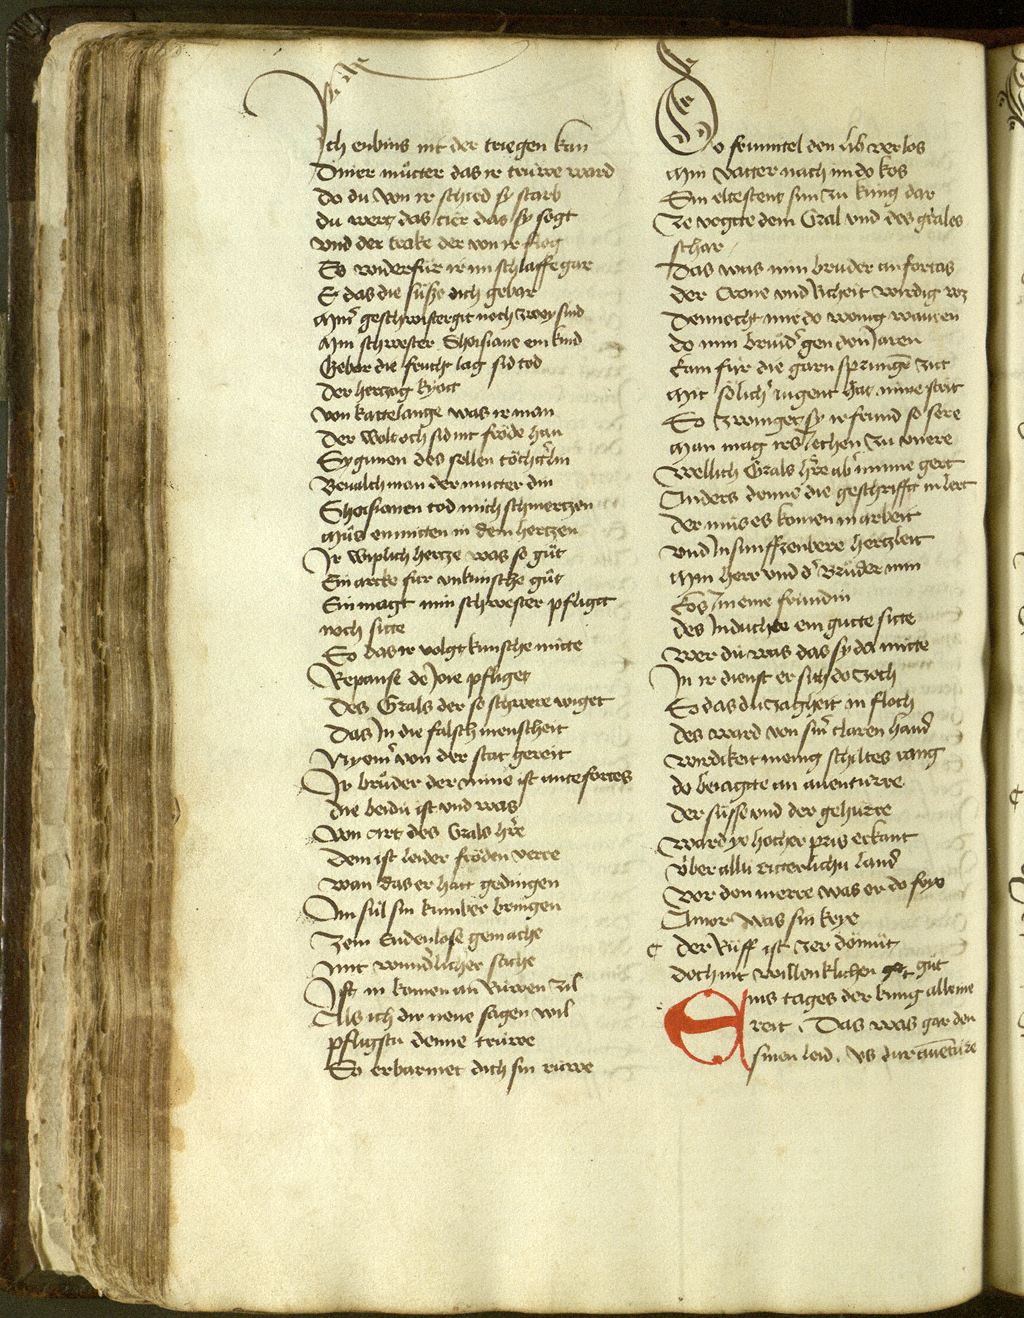 Ich enbins nit der triegen kan
Diner můtter das ir trüwe ward
Do du von ir schied sy starb
du wert das tier das sy sögt
vnd der trake der von ir flog
Es widerfür ir im schlaffe gar
E das die süße dich gebar
Miner geschwistergit noch zwey sind
Min schwester Shoisiane ein kind
Gebar die frucht lag sid tod
Der hertzog kyott
von kattelange was ir man
Der wolt och sid nit fröde han
Sygunen des selben töchterlin
Beualch man der mutter din
Shoisianen tod mich schmertzen
Můs enmitten in dem hertzen
Ir wiplich hertze was so gůt
Ein arcke für vnkünsche flůt
Ein magt min schwester pfligtt
noch sitte
So das ir volgt künsche mitte
Repanse de Joie pfliget
Des Grals der so schwere wiget
Das In die falsch menscheit
Nyemer von der stat gereit
Ir brůder der mine ist antefortes
die beidü ist vnd was
Von art des Grals here
Dem ist leider fröden verre
wan das er hatt gedingen
Im sül sin kumber bringen
Zem Endenlose gemache
mit wunderlicher sache
Ist in komen an Rüwen zil
Als ich dir neue sagen wil
pfligstu denne trüwe
So erbarmet dich sin rüwe
Do frimutel den lib verlos
Min vatter nach im do kos
Sin eltesten sun zu kung dar
Ze vogtte dem Gral vnd des grales
schar
Das was min bruder anfortas
der Crone vnd Richeit wirdig wz
Dennocht wir do wenig waren
do min brůder gen den Jaren
kam für die garn springen zit
Mit sölicher iugent hat mine strit
So zwinget sy ir frund so sere
Man mag irs Jechen zu vnere
wellich Grals here aber minne gert
Anders denne die geschrifft in lert
der mus es komen in arbeit
vnd In sunffzenbere hertzleit
Min herr vnd der Brůder min
kos Im eine frundin
des Induchte ein gutte sitte
wer dü was das sy da mitte
In ir dienst er sich do zoch
So das dü zagheit in floch
des ward von siner claren hand
verdürkeit menig schiltes rang
do beiagtte an auenturre
der süsse vnd der gehürre
ward ye hocher pris erkant
über allü ritterlichü land
vor dem merre was er do fryo
Amor was sin krye
der Rüff ist zer dömüt
doch nit willenklichen gar gůt
Eins tages der kung alleine
reit. Das was gar den
sinen leid. vs dur auentüre